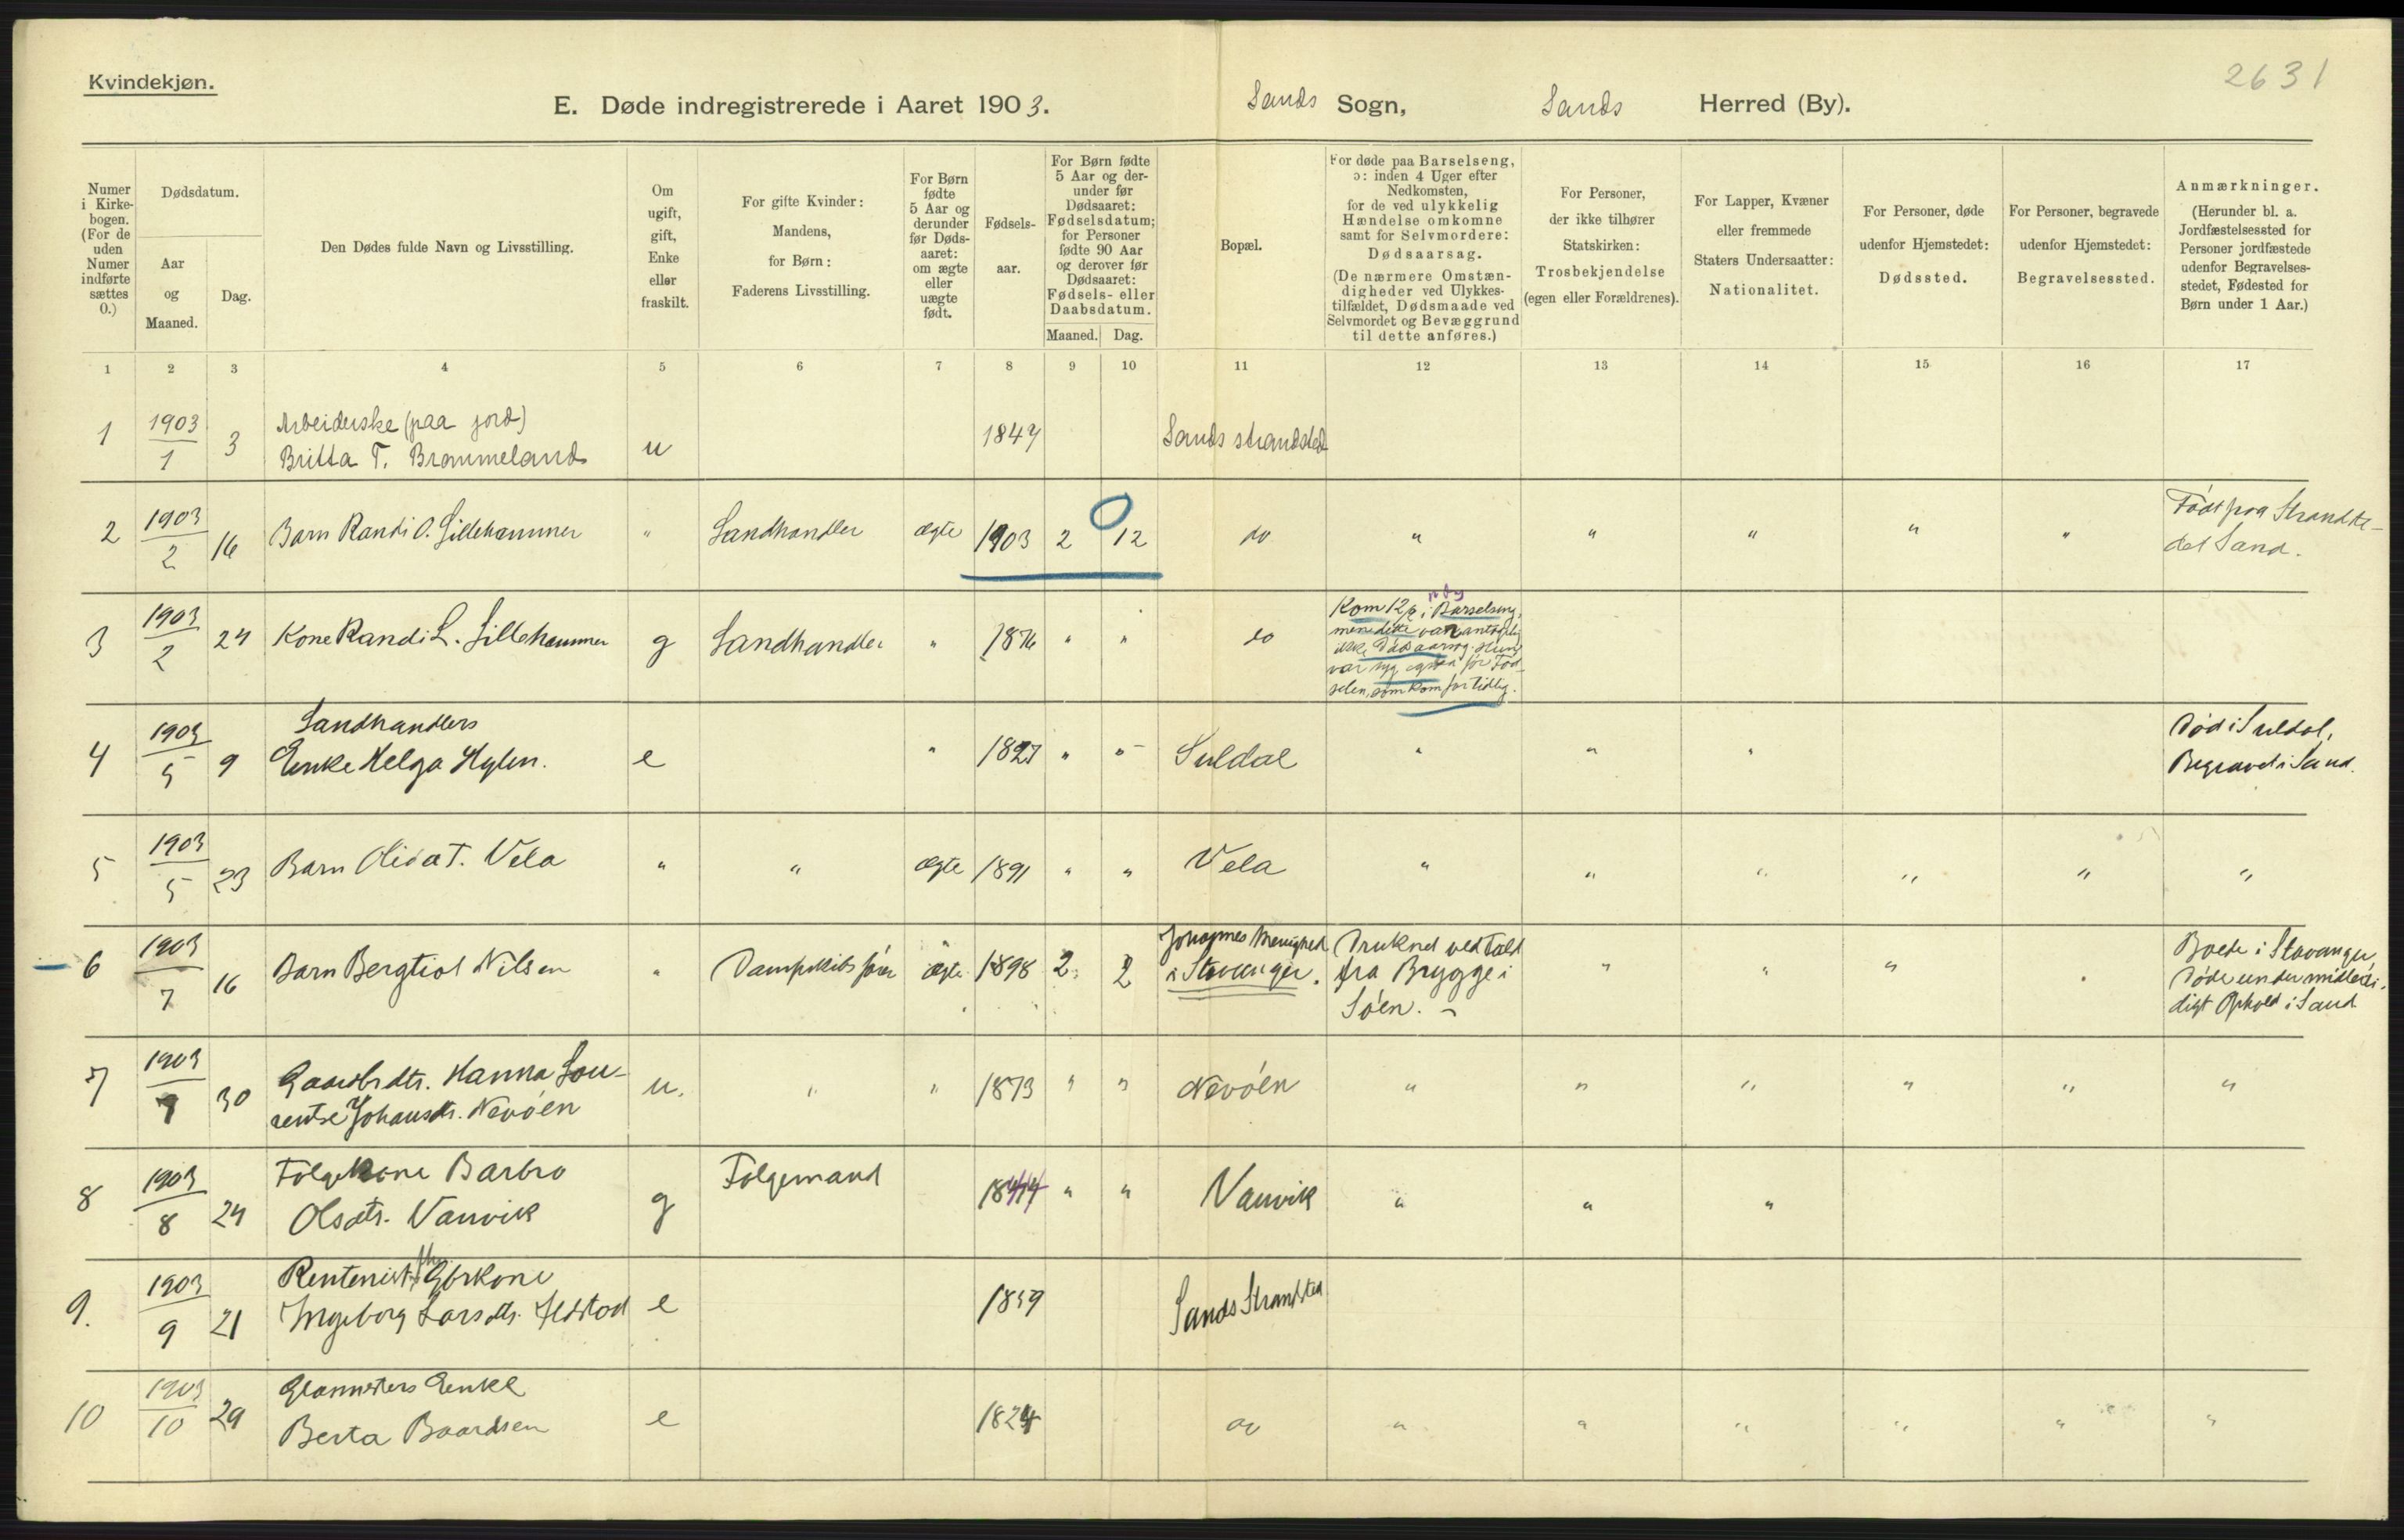 Kvindekjøn.
2631
E. Døde indregistrerede i Aaret 1903. Sands Sogn, Sands Herred (By).
Numer i Kirkebogen. (For de uden Numer indførte sættes 0.)
Dødsdatum.
Aar og Maaned.
Dag.
Den Dødes fulde Navn og Livsstilling.
Om ugift, gift, Enke eller fraskilt.
For gifte Kvinder: Mandens, for Børn: Faderens Livsstilling.
For Børn fødte 5 Aar og derunder før Dødsaaret: om ægte eller uægte født.
Fødselsaar.
For Børn fødte 5 Aar og derunder før Dødsaaret: Fødselsdatum; for Personer fødte 90 Aar og derover før Dødsaaret: Fødsels- eller Daabsdatum.
Maaned. Dag.
Bopæl.
For døde paa Barselseng, ɔ: inden 4 Uger efter Nedkomsten, for de ved ulykkelig Hændelse omkomne samt for Selvmordere: Dødsaarsag. (De nærmere Omstændigheder ved Ulykkestilfældet, Dødsmaade ved Selvmordet og Bevæggrund til dette anføres.)
For Personer, der ikke tilhører Statskirken: Trosbekjendelse (egen eller Forældrenes).
For Lapper, Kvæner eller fremmede Staters Undersaatter: Nationalitet.
For Personer, døde udenfor Hjemstedet: Dødssted.
For Personer, begravede udenfor Hjemstedet: Begravelsessted.
Anmærkninger. (Herunder bl. a. Jordfæstelsessted for Personer jordfæstede udenfor Begravelsesstedet, Fødested for Børn under 1 Aar.)
1 2 3 4 5 6 7 8 9 10 11 12 13 14 15 16 17
1 1903/1 3 Arbeiderske (paa jord)
Britta T. Brommeland u 1847 Sands strandsted
2 1903/2 16 Barn Randi O. Lillehammer " Landhandler ægte 1903 2 12 do " " " " " Født paa Strandstedet Sand.
3 1903/2 24 Kone Randi L. Lillehammer g Landhandler " 1876 " " do Kom 12/2 i Barselseng,
men dette var antagelig
ikke Dødsaarsag. Hun
var syg også før Fødselen, som kom for tidlig.
4 1903/5 9 Landhandlers
Enke Helga Hylen. e " 1827 " " Suldal " " " Død i Suldal,
Begravet i Sand.
5 1903/5 23 Barn Olida T. Vela " " ægte 1891 " " Vela " " " " " "
6 1903/7 16 Barn Bergtiot Nilsen " Dampskibsfører ægte 1898 2 2 Johannes Menighed
i Stavanger. Druknet ved Fald
fra Brygge i
Søen. " " " " Boede i Stavanger,
Døde under midlertidigt Ophold i Sand
7 1903/7 30 Gaardbrdtr. Hanna Lourentse Johansdtr. Nevøen u. " " 1873 " " Nevøen " " " " " "
8 1903/8 24 Følgekone Barbro
Olsdtr. Vanvik g Følgemand " " Vanvik " " "
9. 1903/9 21 Rentenist, Gbrkone
Ingeborg Larsdtr. e 1839 Sands Strandsted
10 1903/10 29 Enke
Berta Baardsen e 1824 do " " " " " "